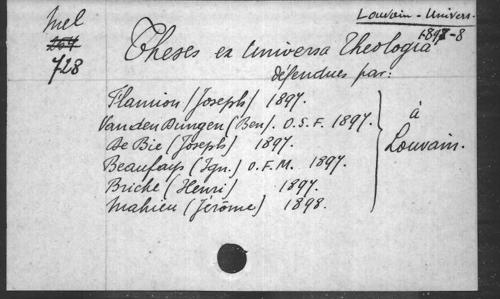 Mel
264
728
Louvain - Univers.
1897-8
Theses ex Universa Theologia
défendues par:
Flamion (Joseph) 1897.
Van den Dungen (Ben). O.S.F. 1897.
De Bie (Joseph) 1897.
Beaufays (Ign.) O.F.M. 1897.
Briché (Henri) 1897.
Mahieu (Jérôme) 1898.
à
Louvain.